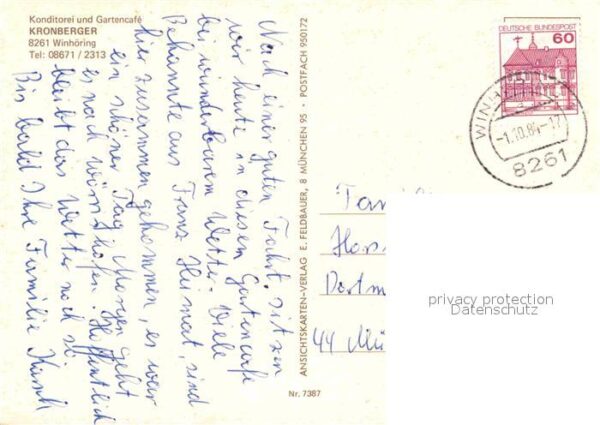 Konditorei und Gartencafé
KRONBERGER
8261 Winhöring
Tel: 08671 / 2313
Nach einer guten Fahrt sitzen
wir heute in diesem Gartencafe
bei wunderbarem Wetter. Viele
Bekannte aus Franz Heimat, sind
hier zusammen gekommen, es war
ein schöner Tag. Morgen geht
es nach Wörishofen. Hoffentlich
bleibt das Wetter noch so.
Bis bald Ihre Familie
ANSICHTSKARTEN-VERLAG E. FELDBAUER, 8 MÜNCHEN 95 · POSTFACH 950172
Nr. 7387
DEUTSCHE BUNDESPOST
60
WINH
-1.10.84-17
8261
Fami
Hors
Dortm
44 Mü
privacy protection
Datenschutz